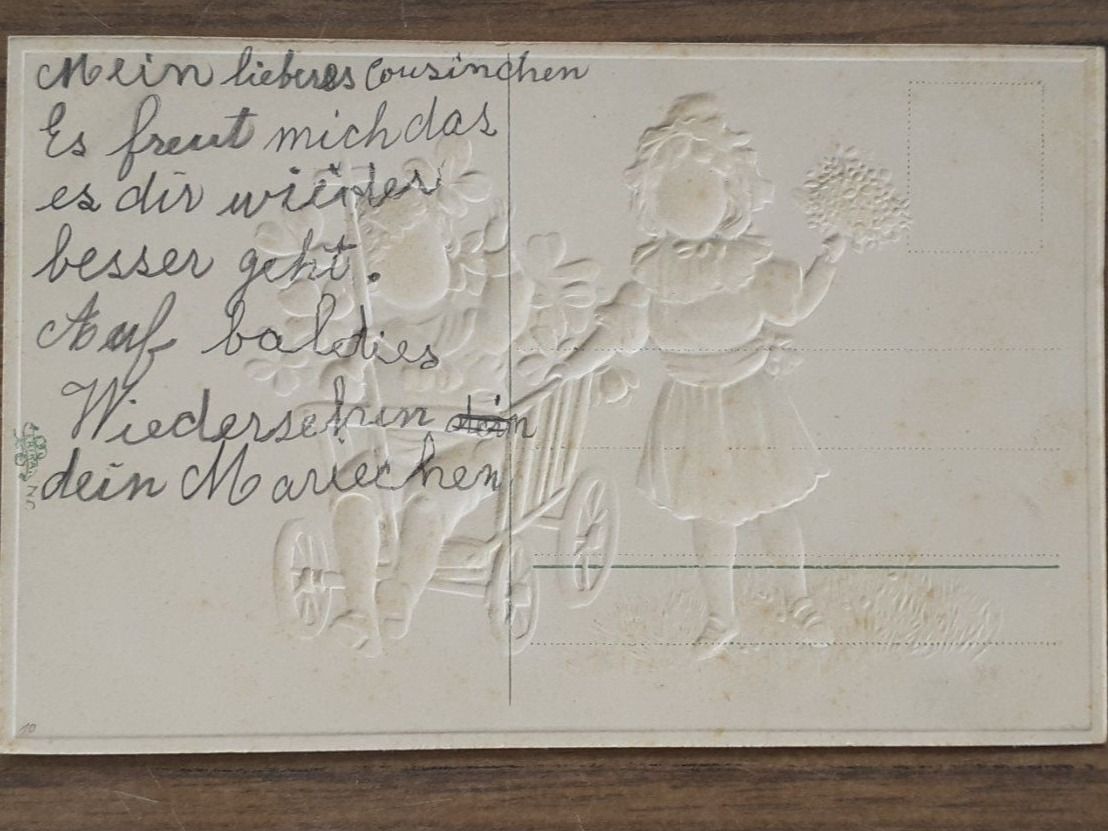 Mein lieberes Cousinchen
Es freut mich das
es dir wieder
besser geht.
Auf baldies
Wiedersehn dein
dein Mariechen
10